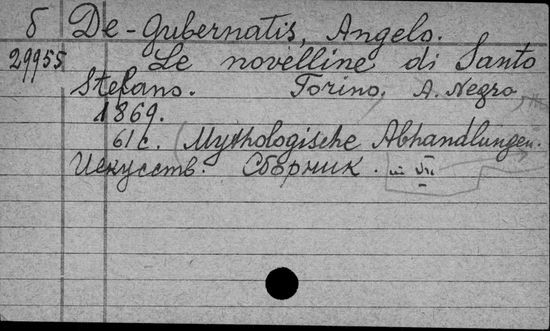 б De-Gubernatis, Angelo.
29955 Le novelline di Santo
Stefano. Torino. A. Negro
1869.
61 с. (Mythologische Abhandlungen.
Искусств. Сборник.